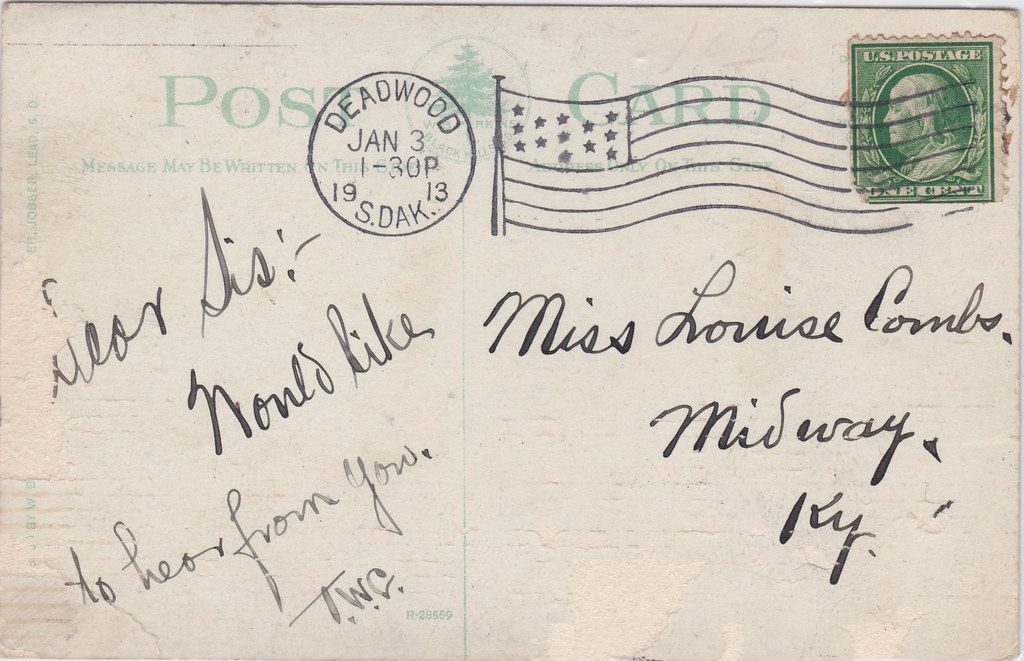 POST CARD
MESSAGE MAY BE WRITTEN ON THIS SIDE
ADDRESS ONLY ON THIS SIDE
DEADWOOD
JAN 3
1-30P
19 13
S.DAK.
U.S. POSTAGE
ONE CENT
BLACK HILLS
ER, JOBBER, LEAD, S. D.
BY W. B
Dear Sis:-
Would like
to hear from you.
Miss Louise Combs.
Midway.
Ky.
R-28559